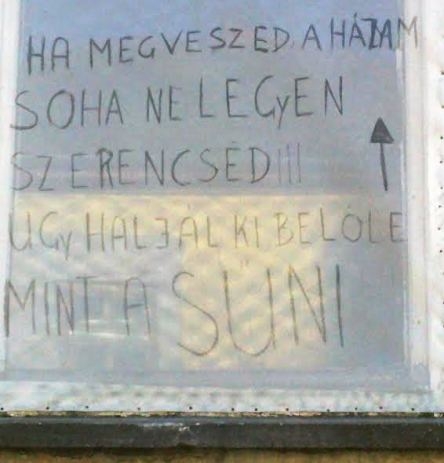 HA MEGVESZED A HÁZAM
SOHA NE LEGyEN
SZERENCSÉD!!!
ÚGy HALJÁL KI BELŐLE
MINT A SÜNI